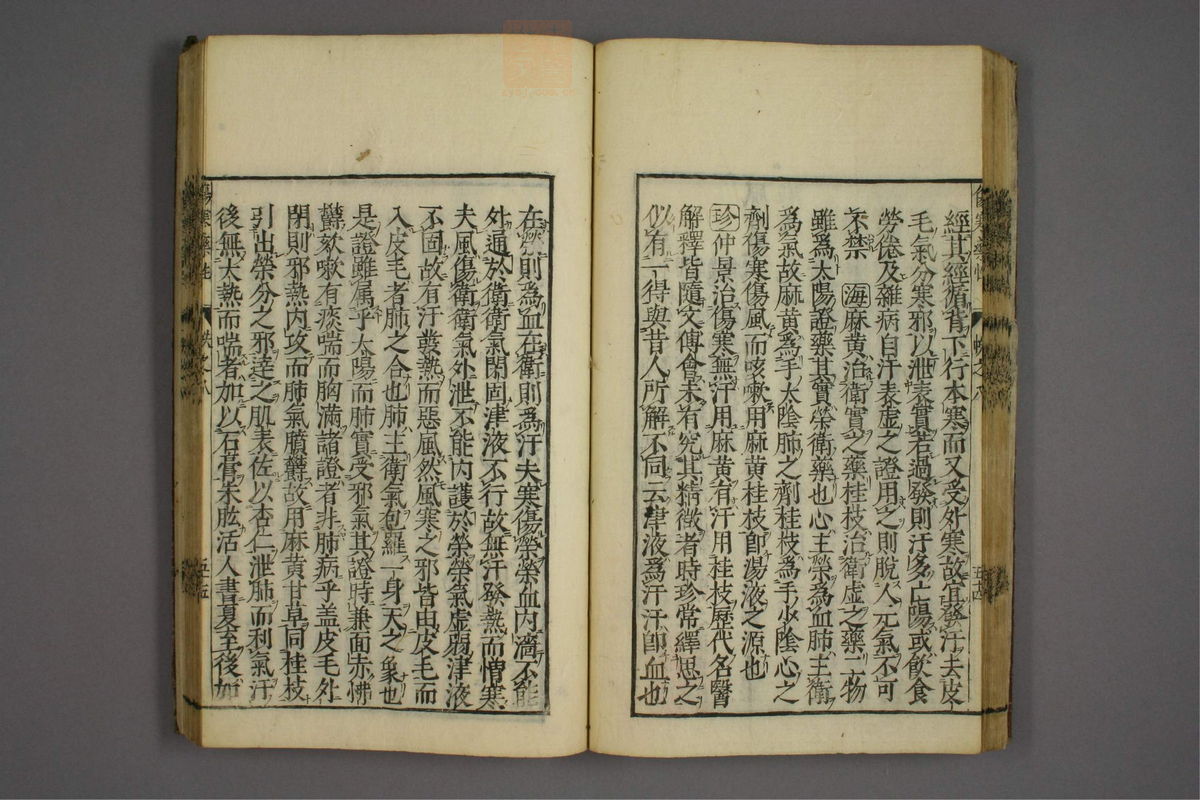 經其經循背下行本寒而又受外寒故宜發汗去皮
毛氣分寒邪以泄表實若過發則汗多亡陽或飲食
勞倦及雜病自汗表虛之證用之則脫人元氣不可
不禁 海麻黄治衛實之藥桂枝治衛虛之藥二物
雖爲太陽證藥其實榮衛藥也心主榮爲血肺主衛
爲氣故麻黄爲手太陰肺之劑桂枝爲手少陰心之
劑傷寒傷風而咳嗽用麻黄桂枝卽湯液之源也
珍仲景治傷寒無汗用麻黄有汗用桂枝歷代名醫
解釋皆隨文傅會未有究其精微者時珍常繹思之
似有一得與昔人所解不同云津液爲汗汗卽血也
在榮則爲血在衛則爲汗夫寒傷榮榮血内濇不能
外通於衛衛氣閉固津液不行故無汗發熱而憎寒
夫風傷衛衛氣外泄不能内護於榮榮氣虛弱津液
不固故有汗發熱而惡風然風寒之邪皆由皮毛而
入皮毛者肺之合也肺主衛氣包羅一身天之象也
是證雖屬乎太陽而肺實受邪氣其證時兼面赤怫
欝欬嗽有痰喘而胸滿諸證者非肺病乎盖皮毛外
閉則邪熱内攻而肺氣膹欝故用麻黄甘草同桂枝
引出榮分之邪達之肌表佐以杏仁泄肺而利氣汗
後無大熱而喘者加以石膏朱肱活人書夏至後加
五十四
五十五